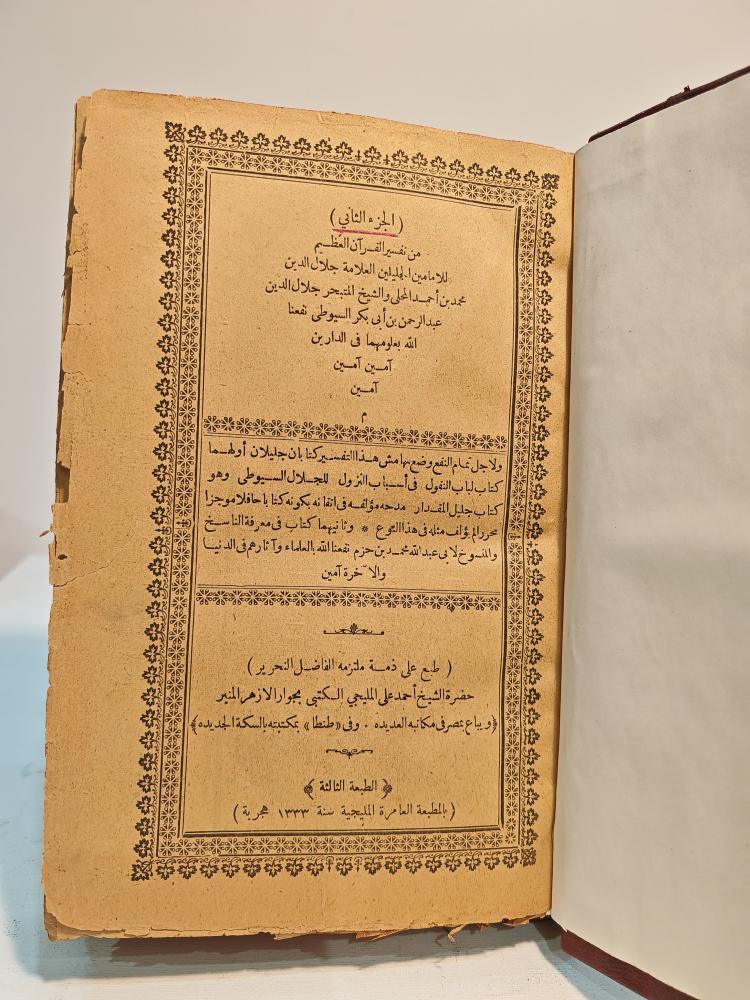 (الجزء الثاني)
من تفسير القرآن العظيم
للامامين الجليلين العلامة جلال الدين
محمد بن أحمد المحلى والشيخ المتبحر جلال الدين
عبد الرحمن بن أبى بكر السيوطى نفعنا
الله بعلومهما فى الدارين
آمين آمين
آمين
م
ولاجل تمام النفع وضع بهامش هذا التفسير كتابان جليلان أولهما
كتاب لباب النقول فى أسباب النزول للجلال السيوطى وهو
كتاب جليل المقدار مدحه مؤلفه فى اتقانه بكونه كتابا حافلا موجزا
محررا لم يؤلف مثله فى هذا النوع * وثانيهما كتاب فى معرفة الناسخ
والمنسوخ لابى عبد الله محمد بن حزم نفعنا الله بالعلماء وآثارهم فى الدنيا
والآخرة آمين
(طبع على ذمة ملتزمه الفاضل النحرير)
حضرة الشيخ أحمد على المليجي الكتبي بجوار الازهر المنير
﴿ويباع بمصر فى مكاتبه العديده . وفى «طنطا» بمكتبته بالسكة الجديده﴾
﴿الطبعة الثالثة﴾
(بالمطبعة العامرة المليجية سنة ١٣٣٣ هجرية)